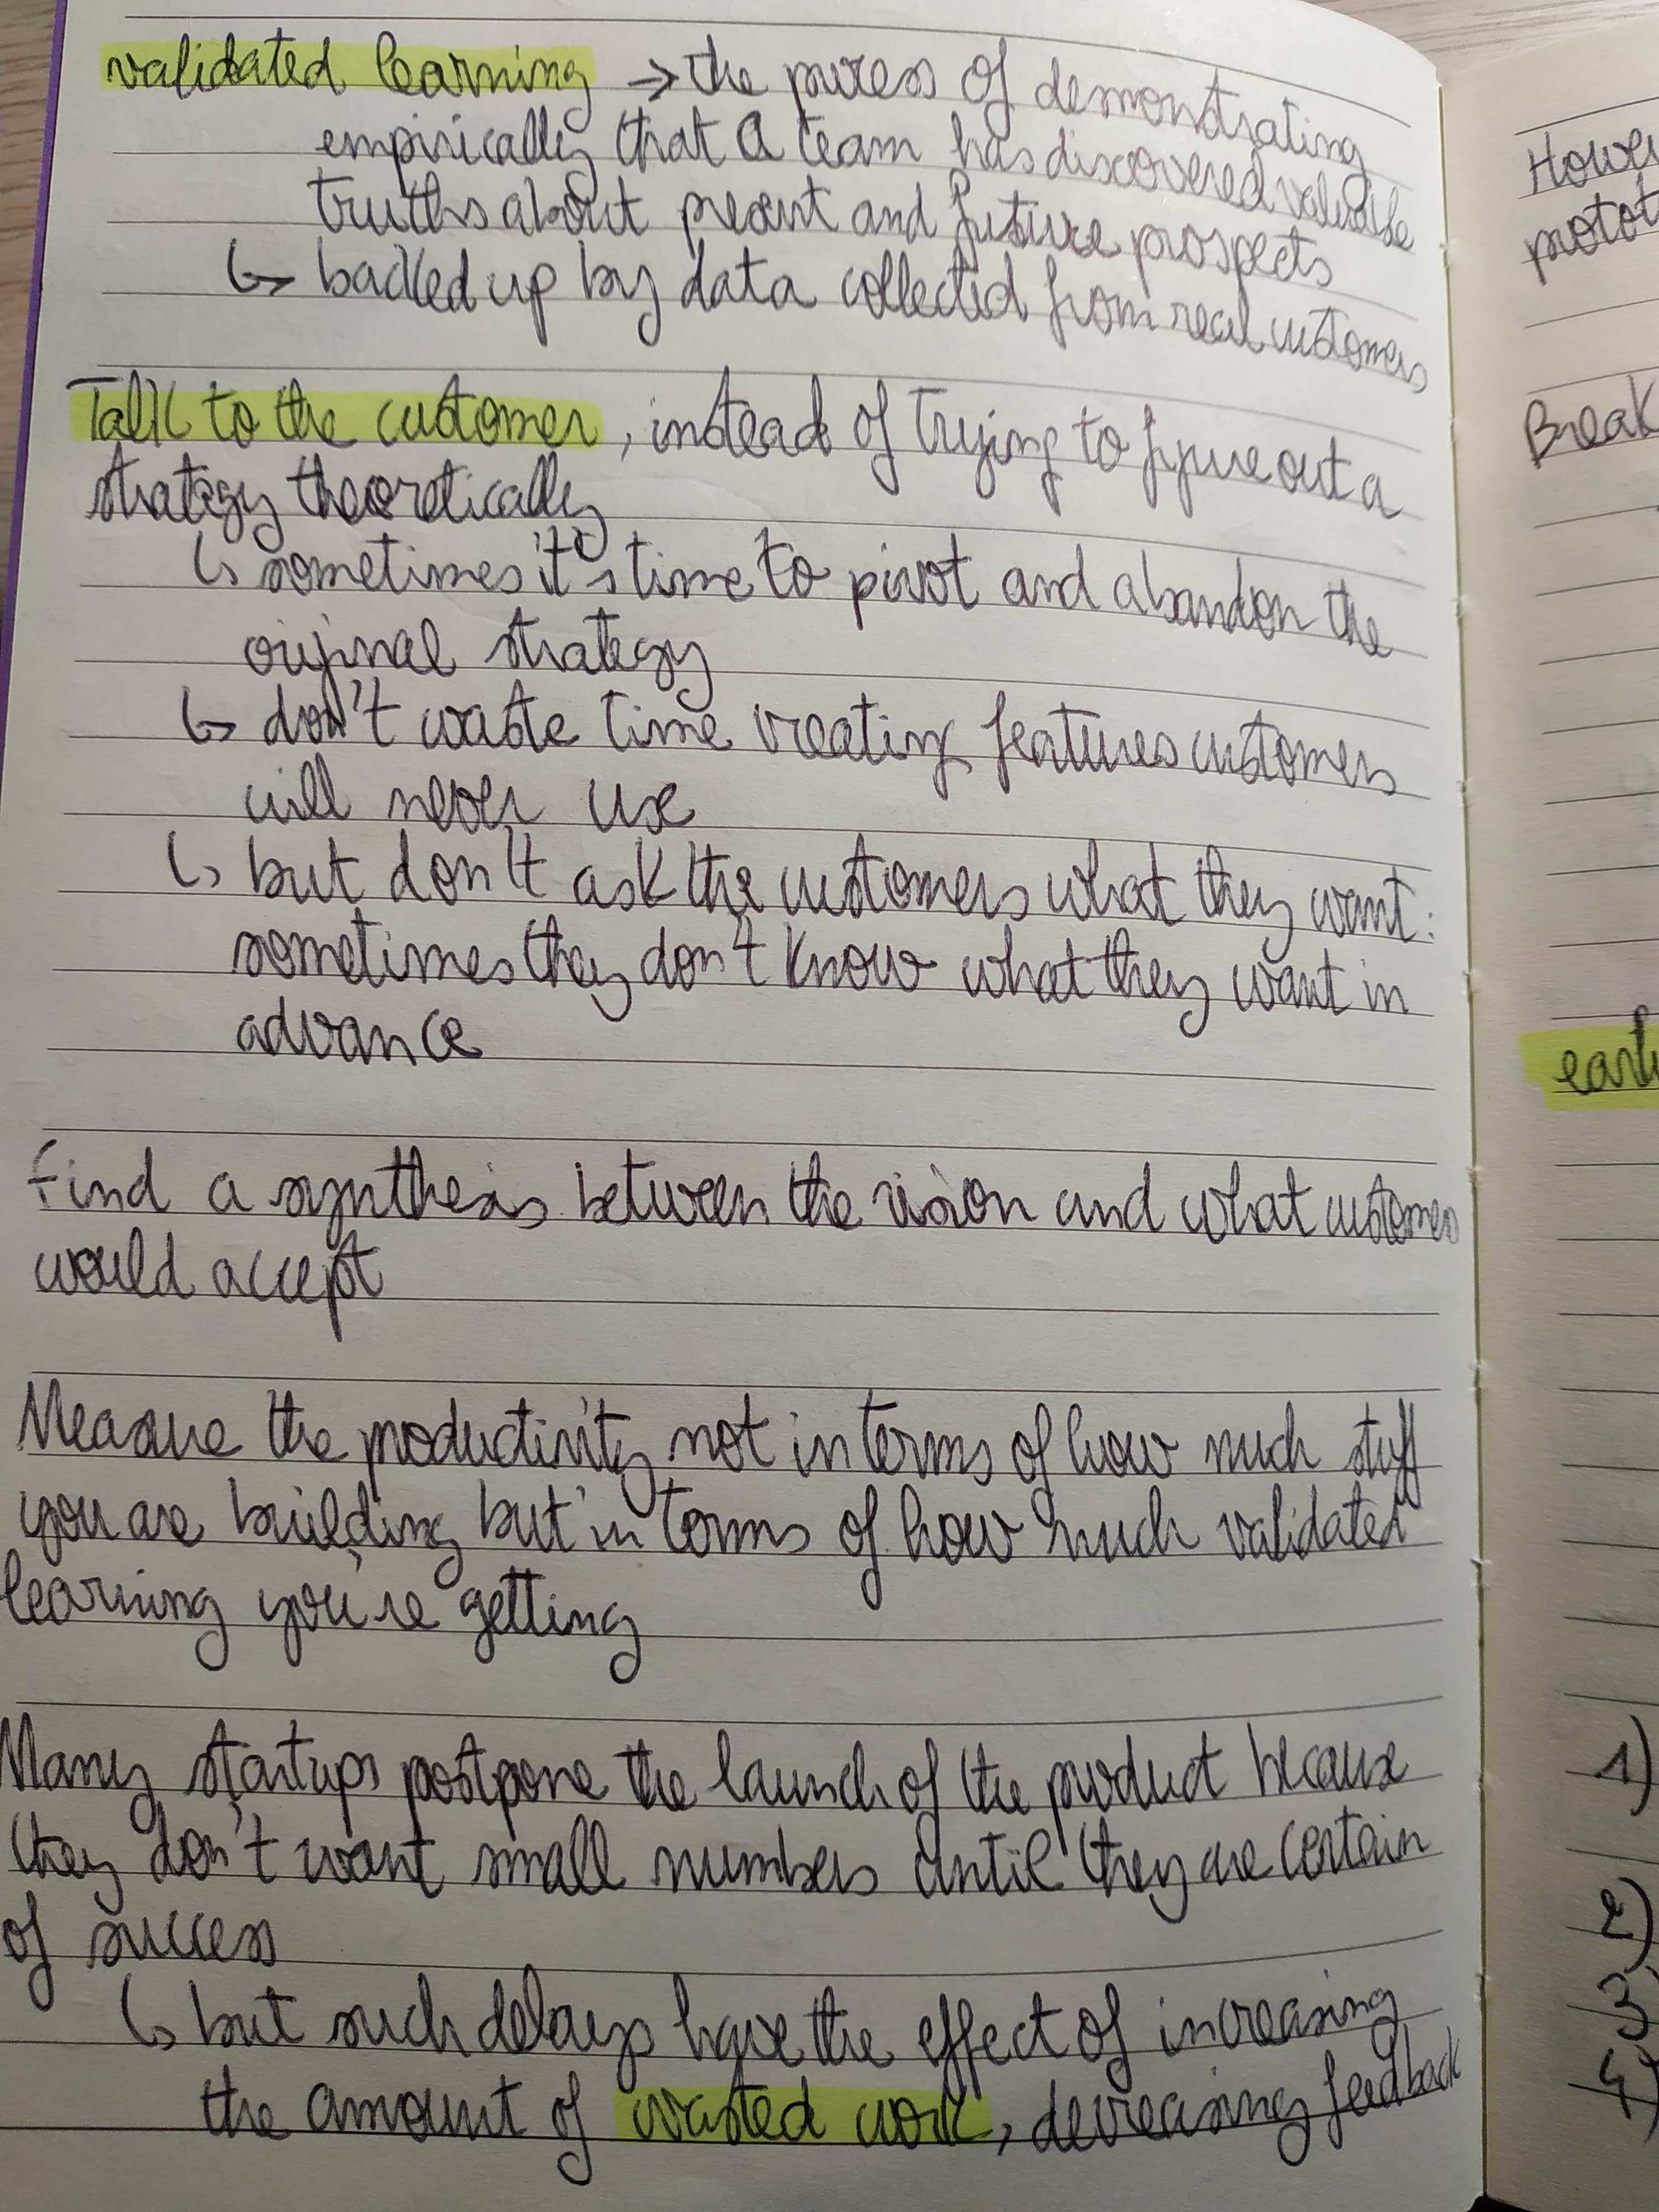 validated learning → the process of demonstrating
empirically that a team has discovered valuable
truths about present and future prospects
↳ backed up by data collected from real customers
Talk to the customer, instead of trying to figure out a
strategy theoretically
↳ sometimes it's time to pivot and abandon the
original strategy
↳ don't waste time creating features customers
will never use
↳ but don't ask the customers what they want:
sometimes they don't know what they want in
advance
Find a synthesis between the vision and what customers
would accept
Measure the productivity not in terms of how much stuff
you are building but in terms of how much validated
learning you're getting
Many startups postpone the launch of the product because
they don't want small numbers until they are certain
of success
↳ but such delays have the effect of increasing
the amount of wasted work, decreasing feedback
Break
1)
2)
3)
4)